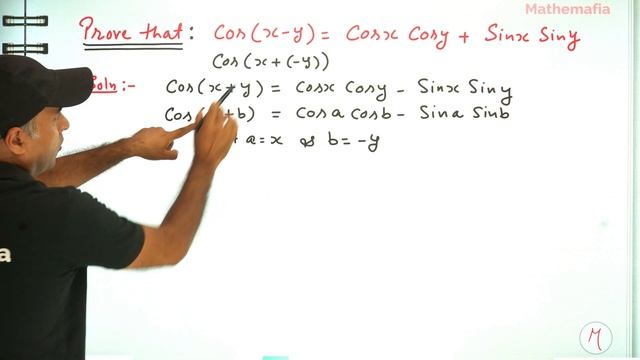 Mathemafia
Prove that: Cos(x-y) = Cosx Cosy + Sinx Siny
Cos(x+(-y))
Soln:- Cos(x+y) = Cosx Cosy - Sinx Siny
Cos( +b) = Cosa Cosb - Sina Sinb
a=x & b=-y
a
M